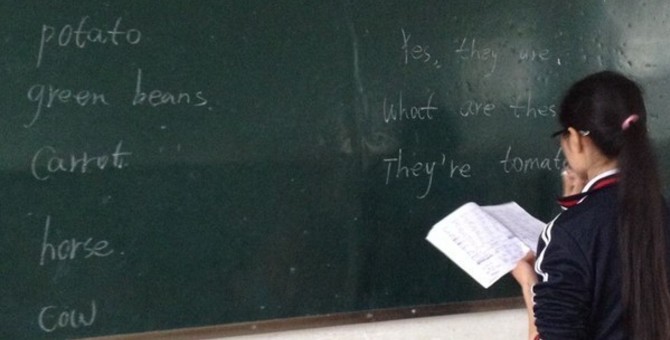 potato
green beans.
Carrot
horse.
Cow
Yes, they are.
What are
They're